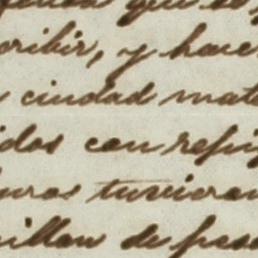 que se
cribir, y hace
ciudad mat
idos con refu
uros tuvieron
illon de pes